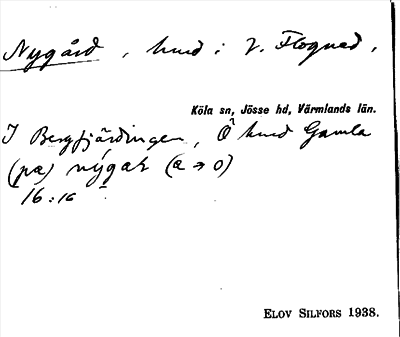 Nygård, hmd i V. Flogned,
Köla sn, Jösse hd, Värmlands län.
I Bergfjärdingen, Ö hmd Gamla
(pa) nýgaʈ (a → o)
16:16
ELOV SILFORS 1938.